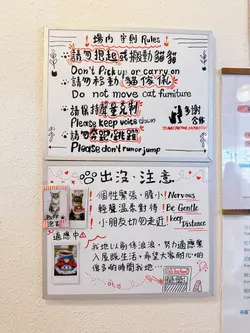 場內 守則 Rules
請勿抱起或搬動貓貓
Don't Pick up or carry on
請勿移動 貓傢俬
Do not move cat furniture
請保持聲量克制
Please keep voice down
多謝合作
請勿奔跑、跳躍
Please don't run or jump
出沒·注意
個性緊張,膽小! Nervous
輕聲溫柔對待! Be Gentle
小朋友切勿走近! keep Distance
適應中
我地以前係浪浪,努力適應緊
入屋院生活,希望大家耐心·啲
俾多啲時間我地